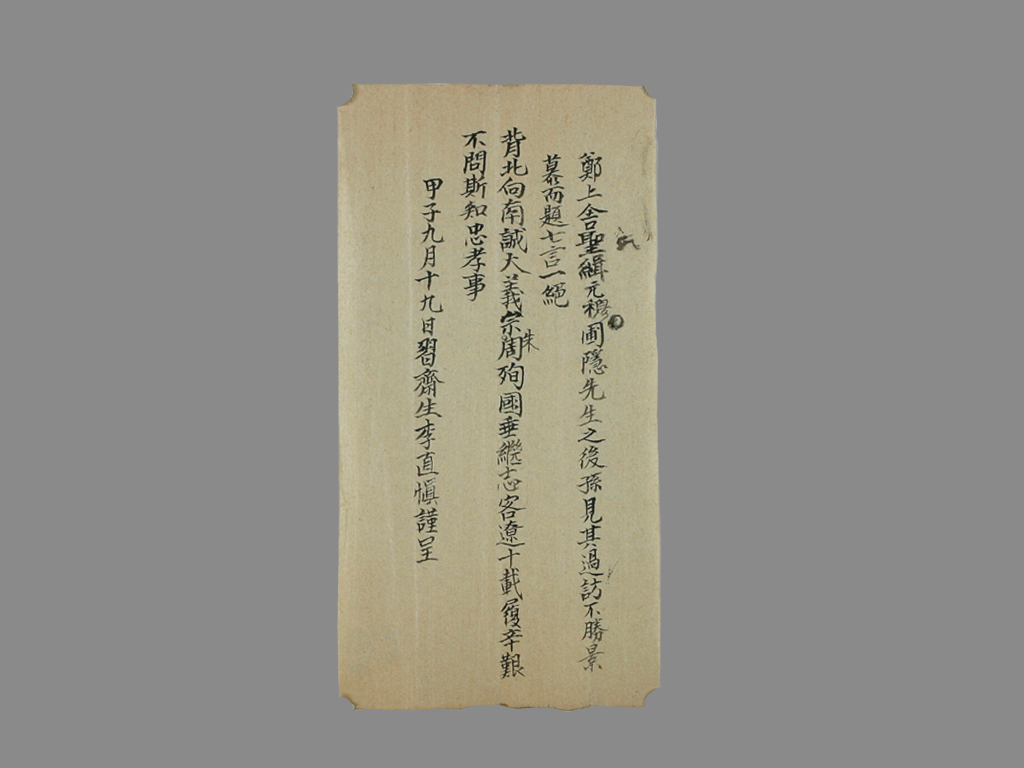 鄭上舍聖緝元穆圃隱先生之後孫見其過訪不勝景
慕而題七言一絕
朱
背北向南誠大義宗周殉國垂繼志客遼十載履辛艱
不問斯知忠孝事
甲子九月十九日習齋生李直愼謹呈